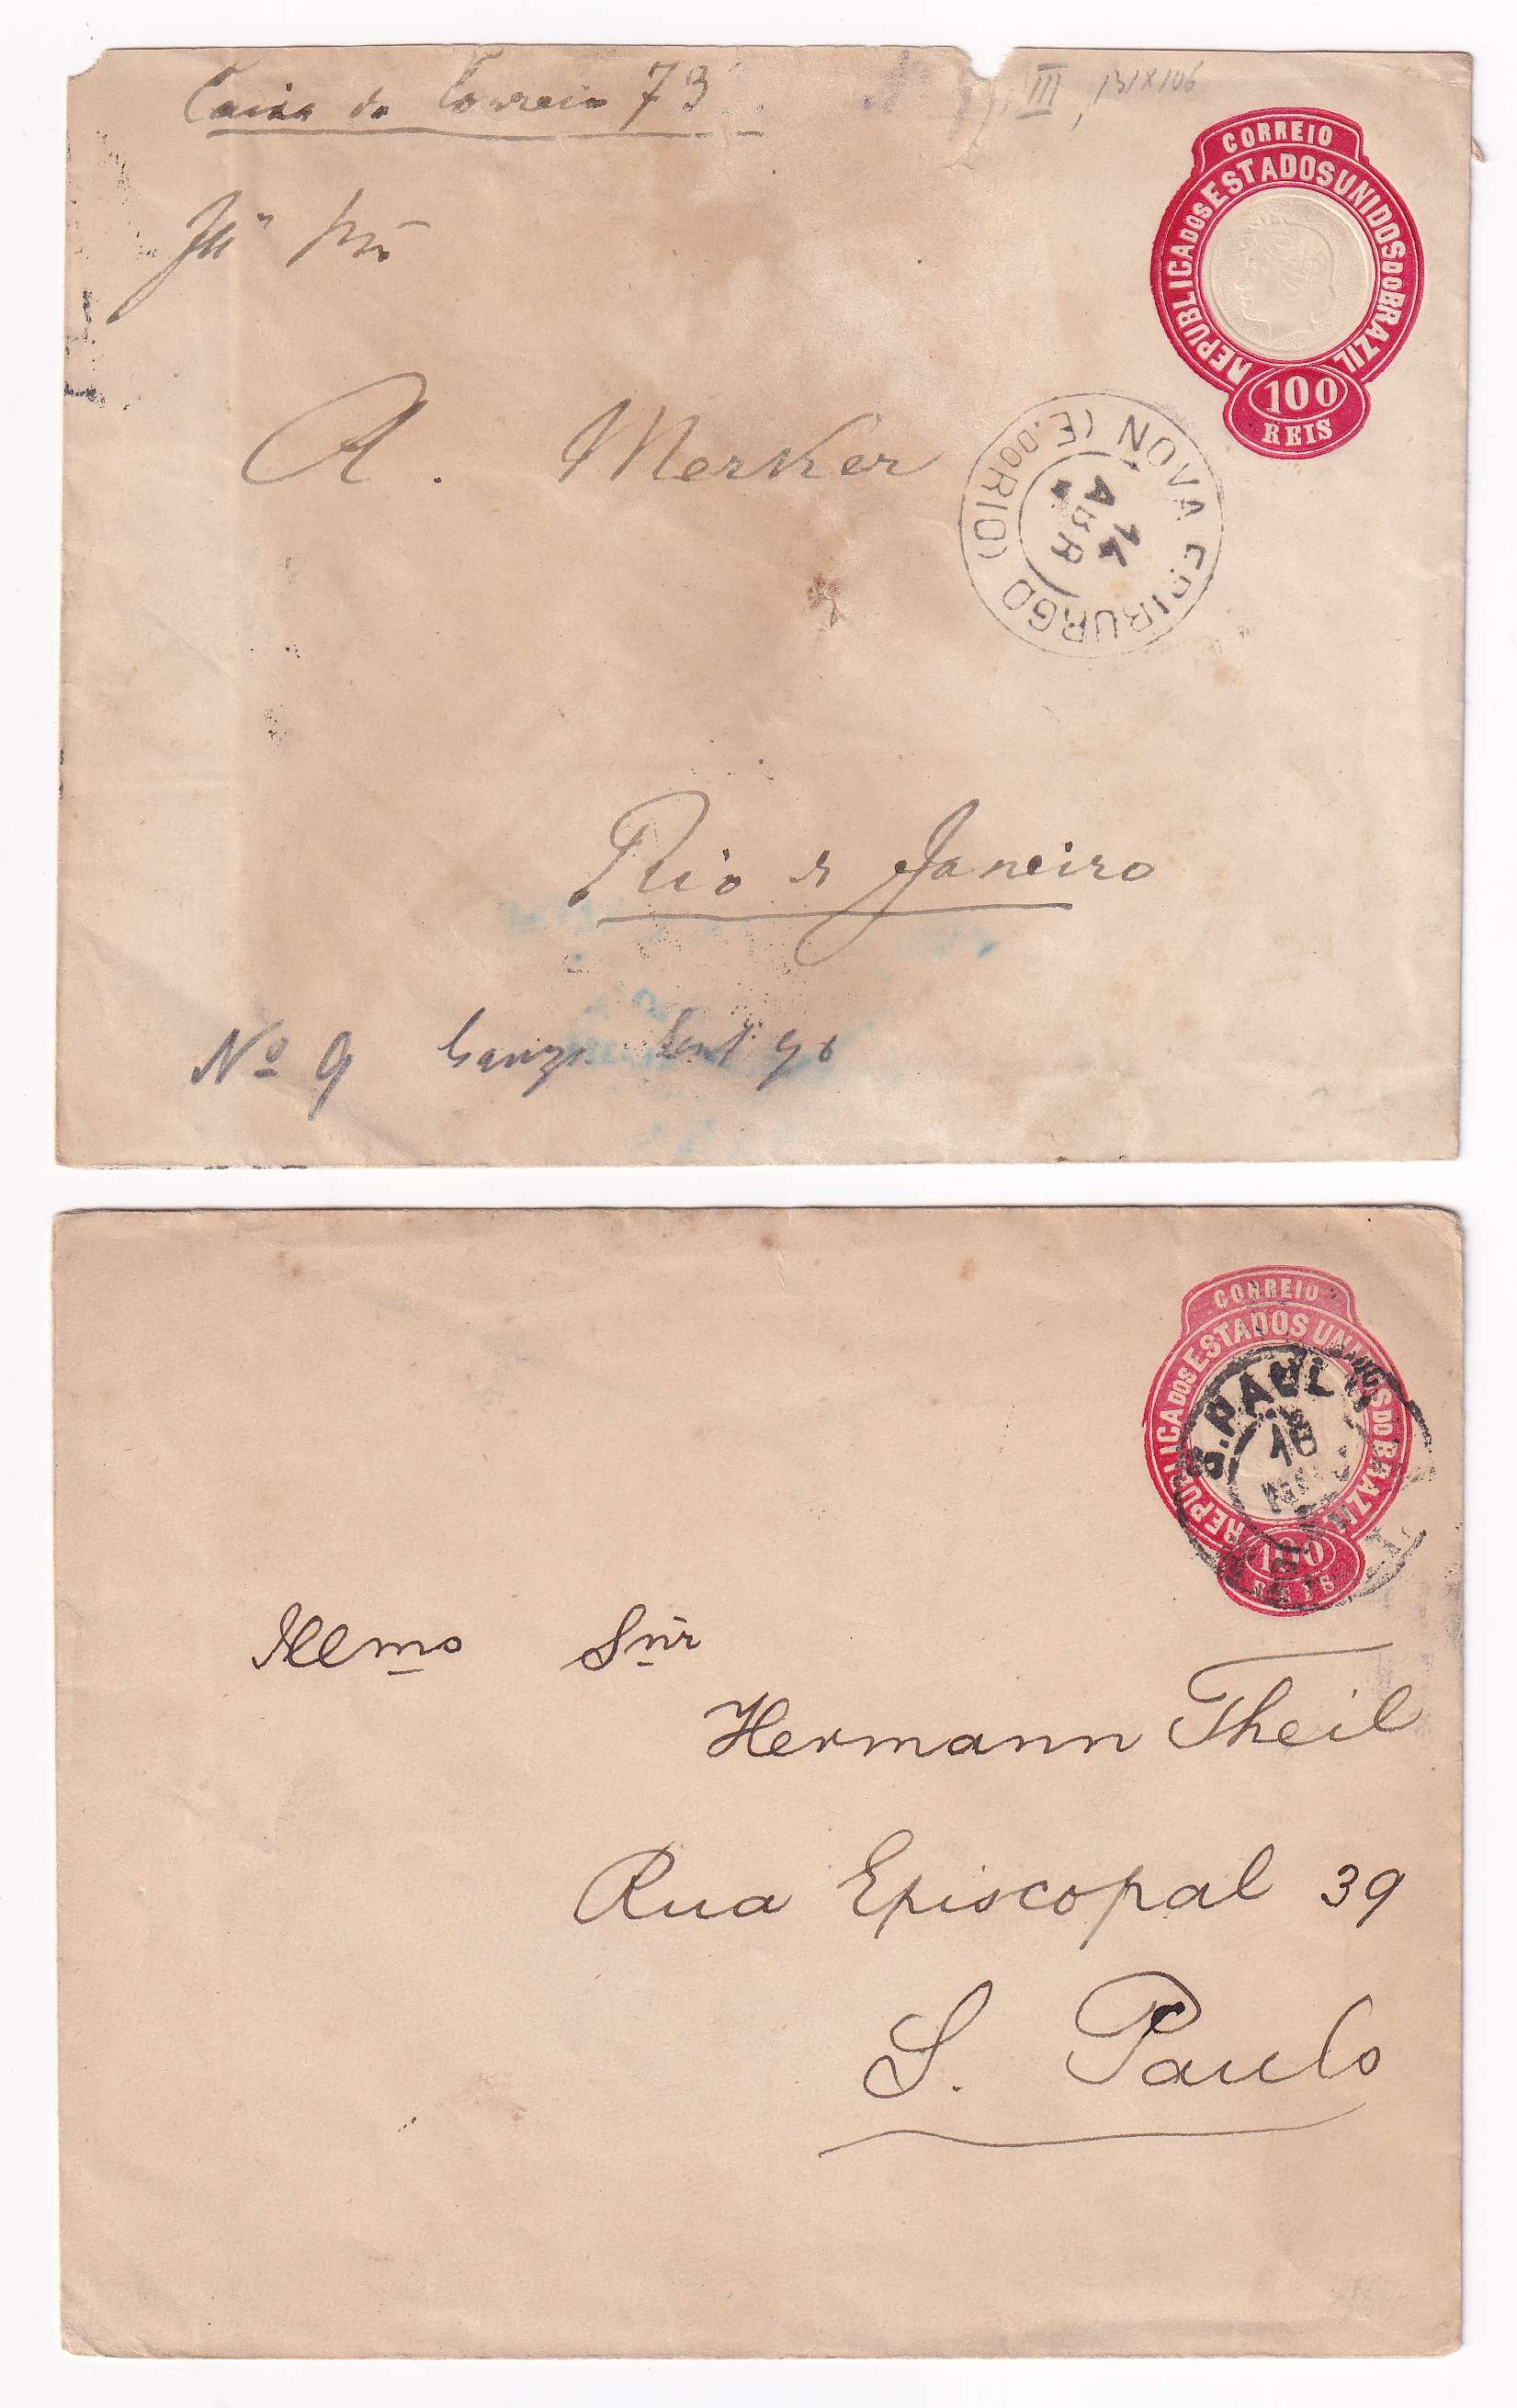 Caixa do Correio 73
III, 131X106
CORREIO
REPUBLICA DOS ESTADOS UNIDOS DO BRAZIL
100
REIS
A. Merker
NOVA FRIBURGO (E. DO RIO)
14
ABR
Rio de Janeiro
Nº 9
CORREIO
REPUBLICA DOS ESTADOS UNIDOS DO BRAZIL
100
REIS
S. PAULO
18
Illmo Snr
Hermann Theil
Rua Episcopal 39
S. Paulo